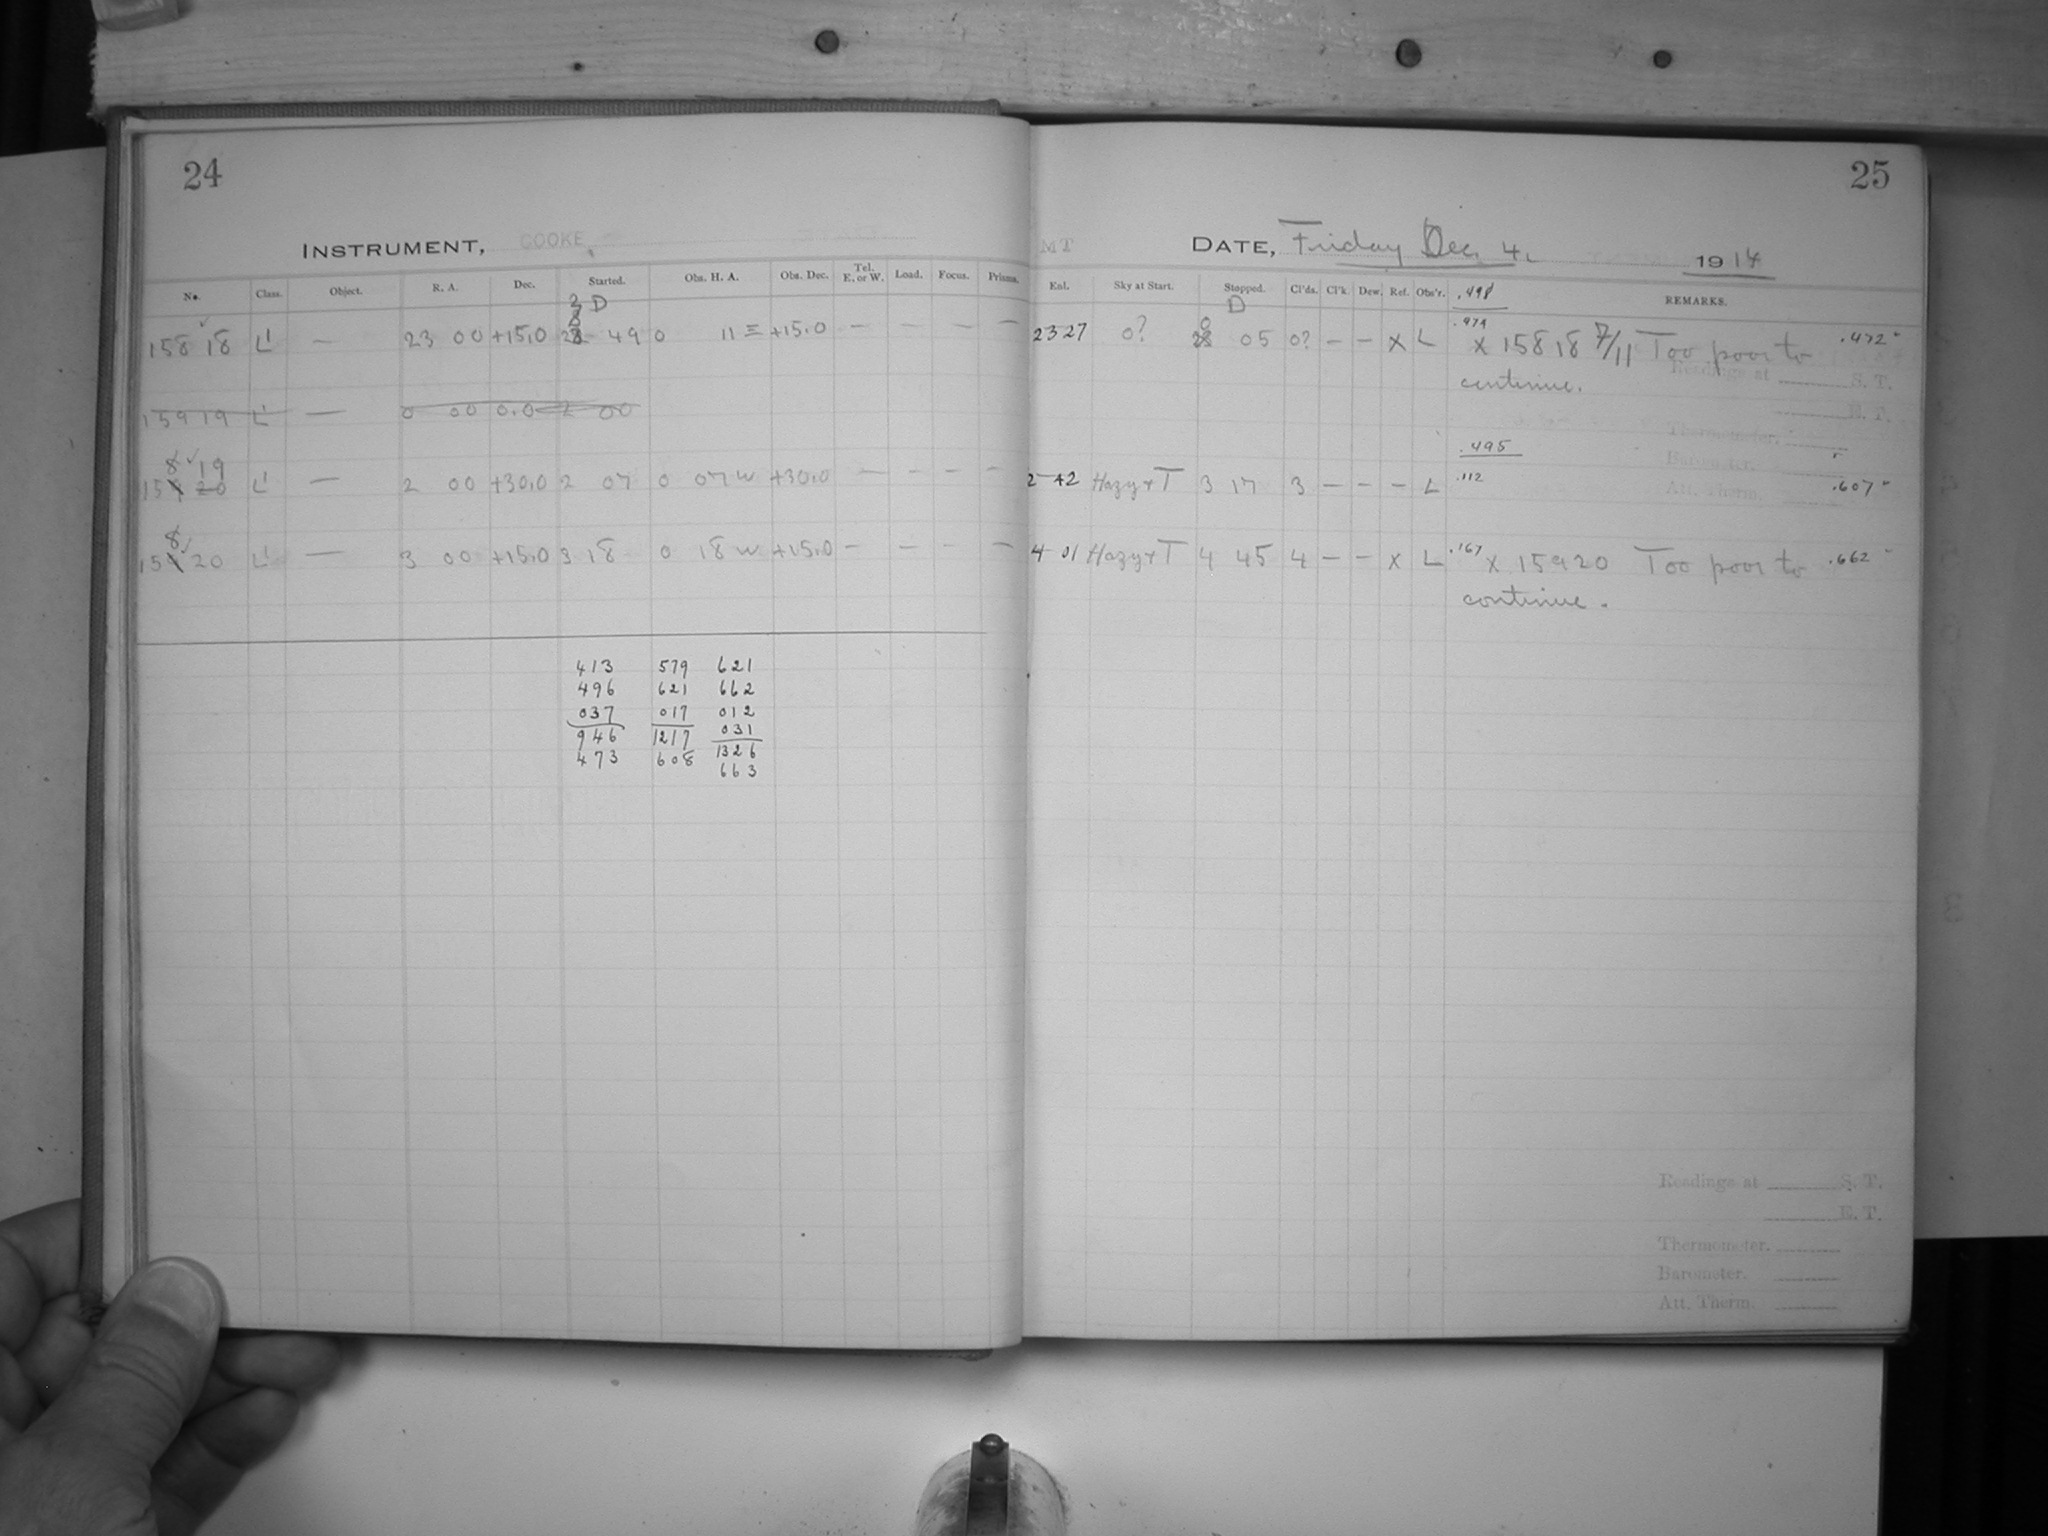 24
INSTRUMENT, COOKE
No. Class. Object. R. A. Dec. Started. Obs. H. A. Obs. Dec. Tel. E. or W. Load. Focus. Prisms.
D
158 18 L' — 23 00 +15.0 49 0 11 E +15.0 — — — —
159 19 L' — 0 00 0.0 2 00
8 19
15 20 L' — 2 00 +30.0 2 07 0 07 W +30.0 — — — —
8
15 20 L' — 3 00 +15.0 3 18 0 18 W +15.0 — — — —
413 579 621
496 621 662
037 017 012
946 1217 031
473 608 1326
663
25
MT DATE, Friday Dec 4. 1914
Enl. Sky at Start. Stopped. Cl'ds. Cl'k. Dew. Ref. Obs'r. .498 REMARKS.
D
.474
23 27 0? 0 05 0? — — X L X 15818 7/11 Too poor to .472
continue.
Readings at S. T.
E. T.
Thermometer.
.495
Barometer.
2 42 Hazy + T 3 17 3 — — — L .112 Att. Therm. .607
4 01 Hazy + T 4 45 4 — — X L .167 X 15920 Too poor to .662
continue.
Readings at S. T.
E. T.
Thermometer.
Barometer.
Att. Therm.